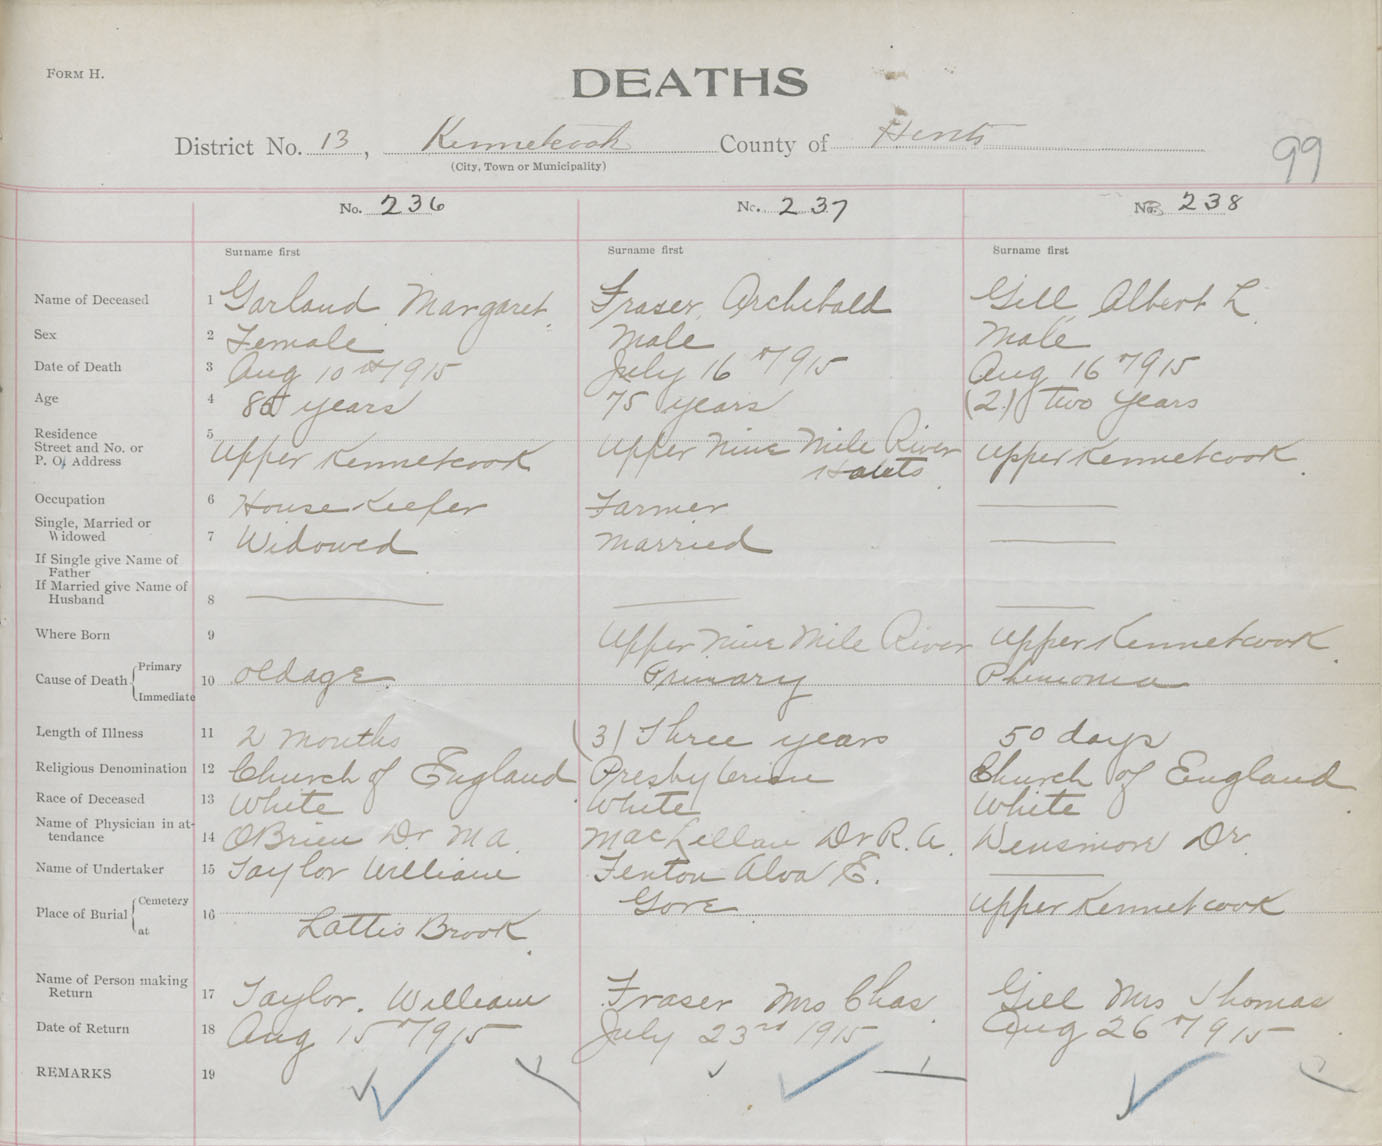 FORM H.
DEATHS
District No. 13, Kennetcook County of Hants
(City, Town or Municipality)
99
No. 236 No. 237 No. 238
Surname first Surname first Surname first
Name of Deceased 1 Garland Margaret Fraser, Archibald Gill, Albert L.
Sex 2 Female Male Male
Date of Death 3 Aug 10th 1915 July 16th 1915 Aug 16th 1915
Age 4 years 75 years (2) two years
Residence 5
Street and No. or Upper Nine Mile River
P. O. Address Upper Kennetcook Hants Upper Kennetcook.
Occupation 6 House Keefer Farmer
Single, Married or
Widowed 7 Widowed Married
If Single give Name of
Father
If Married give Name of
Husband 8
Where Born 9 Upper Nine Mile River Upper Kennetcook.
Cause of Death Primary
10 oldage. Primary Phenomia
Immediate
Length of Illness 11 2 months (3) Three years 50 days
Religious Denomination 12 Church of England Presbyterian Church of England.
Race of Deceased 13 White White White
Name of Physician in at-
tendance 14 OBrien Dr. M A. MacLellan Dr R. A. Densmore Dr.
Name of Undertaker 15 Taylor William Fenton Alva E.
Place of Burial Cemetery Gore Upper Kennetcook
16
at Lattis Brook.
Name of Person making
Return 17 Taylor. William Fraser Mrs Chas. Gill Mrs Thomas
Date of Return 18 Aug 15th 1915 July 23rd 1915 Aug 26th 1915
REMARKS 19